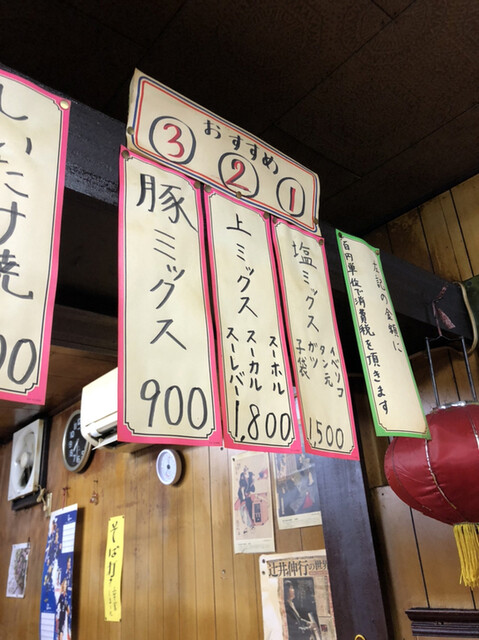 おすすめ
① ② ③
左記の金額に
百円単位で消費税を頂きます
塩ミックス
イベリコ
タン元
ガツ
子袋
1,500
上ミックス
スーホル
スーカル
スーレバー
1,800
豚ミックス
900
しいたけ焼
00
辻井伸行の世界